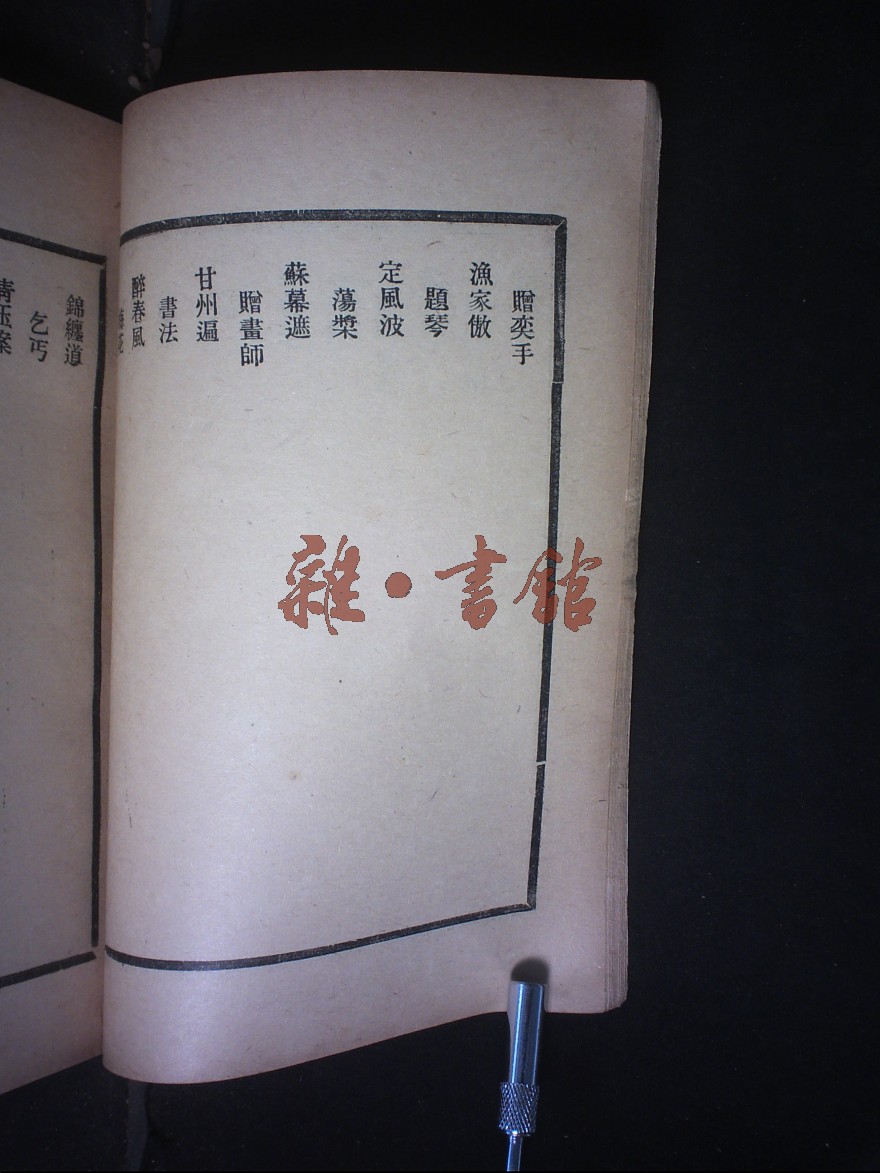 贈奕手
漁家傲
題琴
定風波
蕩槳
蘇幕遮
贈畫師
甘州遍
書法
醉春風
錦纏道
乞丐
青玉案
雜·書館